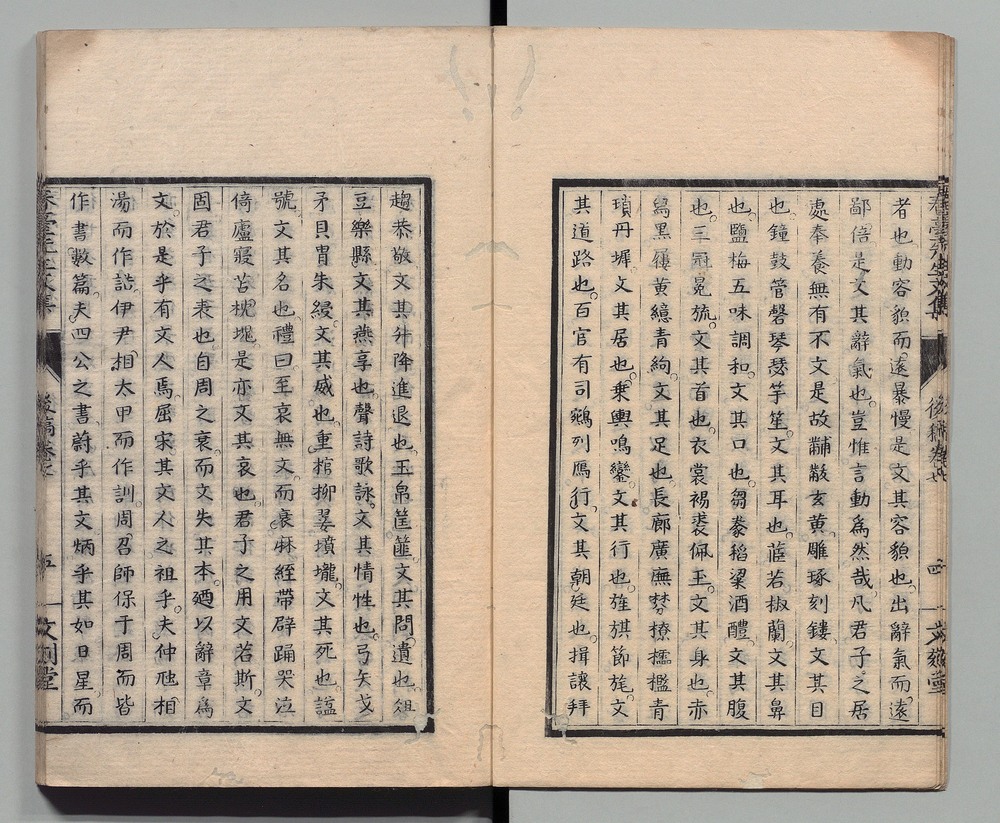 者也動容貌而遠暴慢是文其容貌也出辭氣而遠
鄙倍是文其辭氣也豈惟言動為然哉凡君子之居
處奉養無有不文是故黼黻玄黃雕琢刻鏤文其目
也鐘鼓管磬琴瑟竽笙文其耳也茝若椒蘭文其鼻
也鹽梅五味調和文其口也芻豢稻粱酒醴文其腹
也三冠冕旒文其首也衣裳裼裘佩玉文其身也赤
舄黑鏤黃繶青絇文其足也長廊廣廡棼橑櫺檻青
瑣丹墀文其居也乘輿鳴鑾文其行也旌旗節旄文
其道路也百官有司鵷列鴈行文其朝廷也揖讓拜
趨恭敬文其升降進退也玉帛筐篚文其問遺也俎
豆樂縣文其燕享也聲詩歌詠文其情性也弓矢戈
矛貝冑朱綅文其威也重棺柳翣墳壠文其死也謚
號文其名也禮曰至哀無文而衰麻絰帶辟踊哭泣
倚廬寢苫枕塊是亦文其哀也君子之用文若斯文
固君子之表也自周之衰而文失其本廼以辭章為
文於是乎有文人焉屈宋其文人之祖乎夫仲虺相
湯而作誥伊尹相太甲而作訓周召師保于周而皆
作書數篇夫四公之書蔚乎其文炳乎其如日星而
春臺先生文集 後稿卷之 五 文刻堂